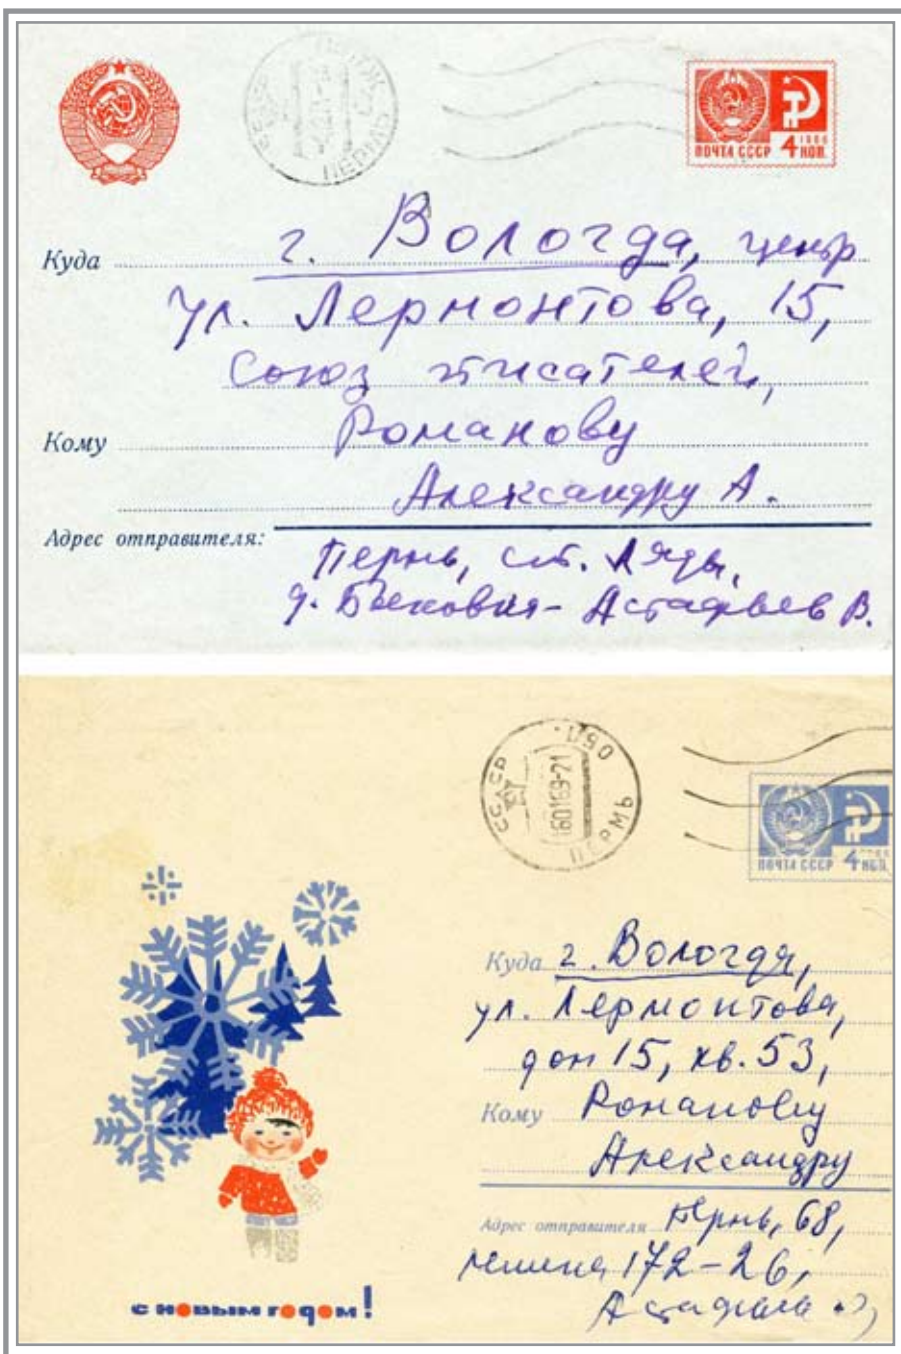 ПЕРМЬ
ПОЧТА СССР 4 КОП.
1966
Куда г. Вологда, центр
ул. Лермонтова, 15,
Союз писателей,
Кому Романову
Александру А.
Адрес отправителя:
Пермь, ст. Ляды,
д. Быковка - Астафьев В.
СССР
1790
160169-21
ПЕРМЬ
ПОЧТА СССР 4 КОП.
Куда г. Вологда,
ул. Лермонтова,
дом 15, кв. 53,
Кому Романову
Александру
Адрес отправителя Пермь, 68,
Ленина, 172-26,
с новым годом!